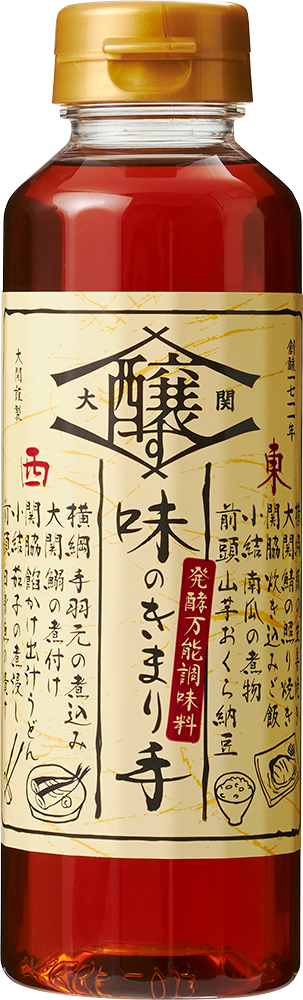 創醸一七一一年
大関
醸す
味のきまり手
発酵万能調味料
東
大関 鯖の照り焼き
関脇 炊き込みご飯
小結 南瓜の煮物
前頭 山芋おくら納豆
西
横綱 手羽元の煮込み
大関 鰯の煮付け
関脇 餡かけ出汁うどん
小結 茄子の煮浸し
前頭
大関謹製